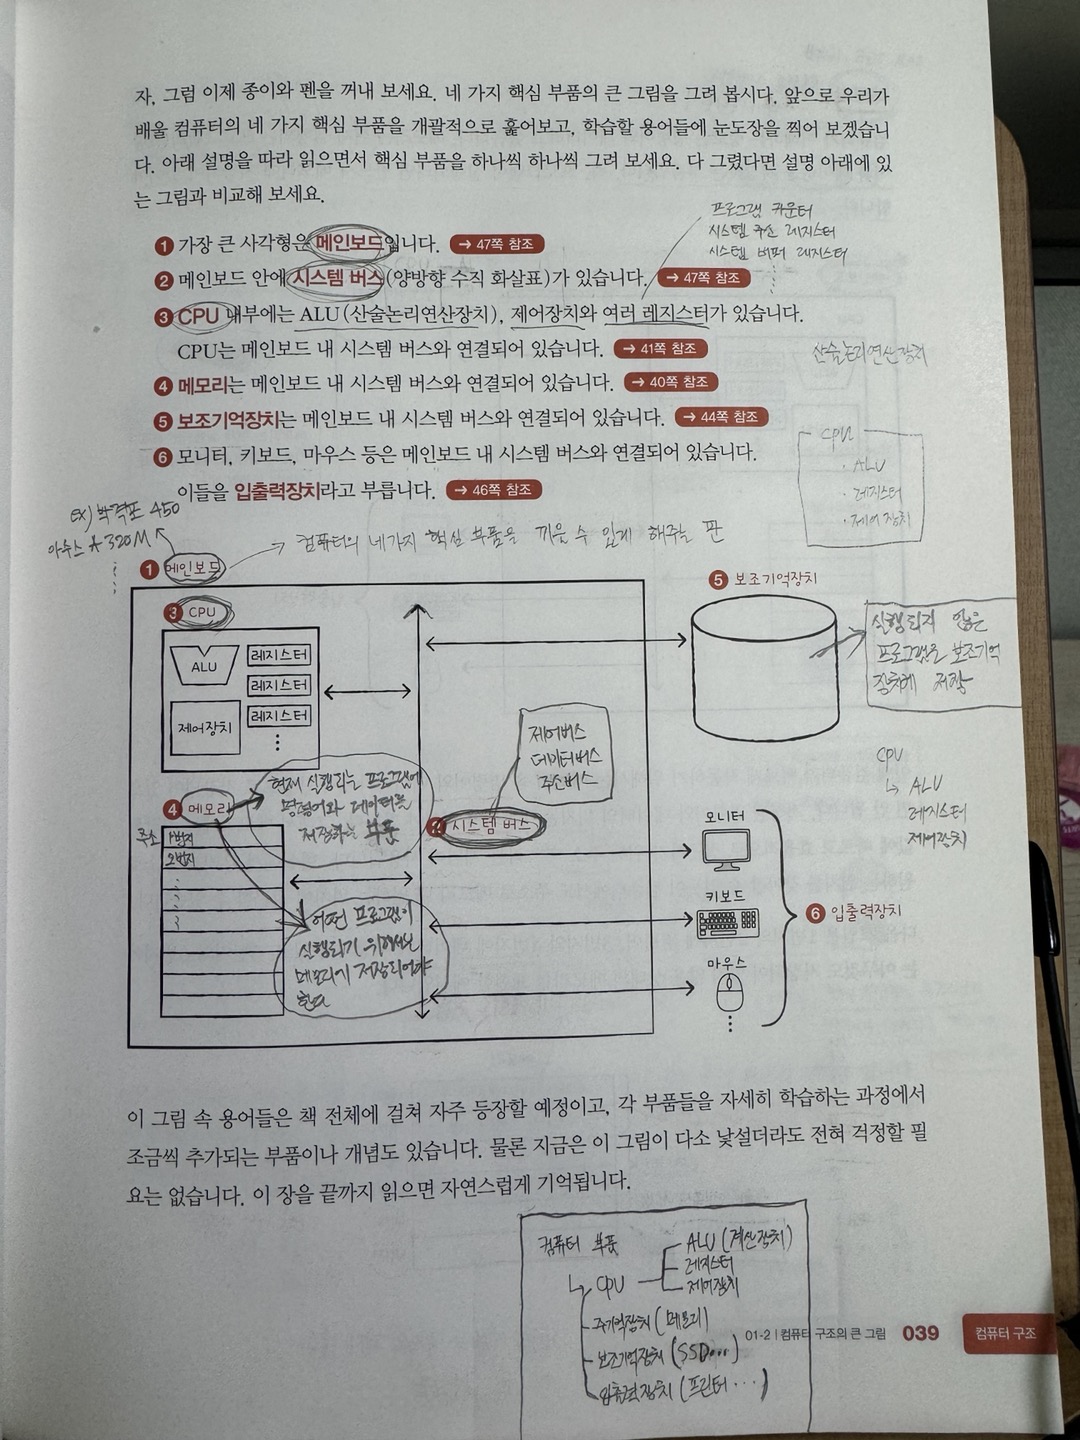 자, 그럼 이제 종이와 펜을 꺼내 보세요. 네 가지 핵심 부품의 큰 그림을 그려 봅시다. 앞으로 우리가
배울 컴퓨터의 네 가지 핵심 부품을 개괄적으로 훑어보고, 학습할 용어들에 눈도장을 찍어 보겠습니
다. 아래 설명을 따라 읽으면서 핵심 부품을 하나씩 하나씩 그려 보세요. 다 그렸다면 설명 아래에 있
는 그림과 비교해 보세요.
프로그램 카운터
시스템 주소 레지스터
시스템 버퍼 레지스터
1 가장 큰 사각형은 메인보드입니다. → 47쪽 참조
2 메인보드 안에 시스템 버스(양방향 수직 화살표)가 있습니다. → 47쪽 참조
3 CPU 내부에는 ALU(산술논리연산장치), 제어장치와 여러 레지스터가 있습니다.
CPU는 메인보드 내 시스템 버스와 연결되어 있습니다. → 41쪽 참조
산술논리연산장치
4 메모리는 메인보드 내 시스템 버스와 연결되어 있습니다. → 40쪽 참조
5 보조기억장치는 메인보드 내 시스템 버스와 연결되어 있습니다. → 44쪽 참조
6 모니터, 키보드, 마우스 등은 메인보드 내 시스템 버스와 연결되어 있습니다.
이들을 입출력장치라고 부릅니다. → 46쪽 참조
CPU
· ALU
· 레지스터
· 제어장치
ex) 박격포 450
아수스 A320M
컴퓨터의 네가지 핵심 부품을 끼울 수 있게 해주는 판
1 메인보드
5 보조기억장치
3 CPU
ALU
레지스터
레지스터
제어장치
레지스터
실행되지 않은
프로그램을 보조기억
장치에 저장
제어버스
데이터버스
주소버스
CPU
↳ ALU
레지스터
제어장치
현재 실행되는 프로그램에
명령어와 데이터를
저장하는 부품
4 메모리
2 시스템 버스
주소
1번지
2번지
모니터
키보드
6 입출력장치
마우스
어떤 프로그램이
실행되기 위해서는
메모리에 저장되어야
한다
이 그림 속 용어들은 책 전체에 걸쳐 자주 등장할 예정이고, 각 부품들을 자세히 학습하는 과정에서
조금씩 추가되는 부품이나 개념도 있습니다. 물론 지금은 이 그림이 다소 낯설더라도 전혀 걱정할 필
요는 없습니다. 이 장을 끝까지 읽으면 자연스럽게 기억됩니다.
컴퓨터 부품
↳ CPU
ALU (계산장치)
레지스터
제어장치
주기억장치 (메모리)
보조기억장치 (SSD...)
입출력장치 (프린터...)
01-2 | 컴퓨터 구조의 큰 그림 039
컴퓨터 구조